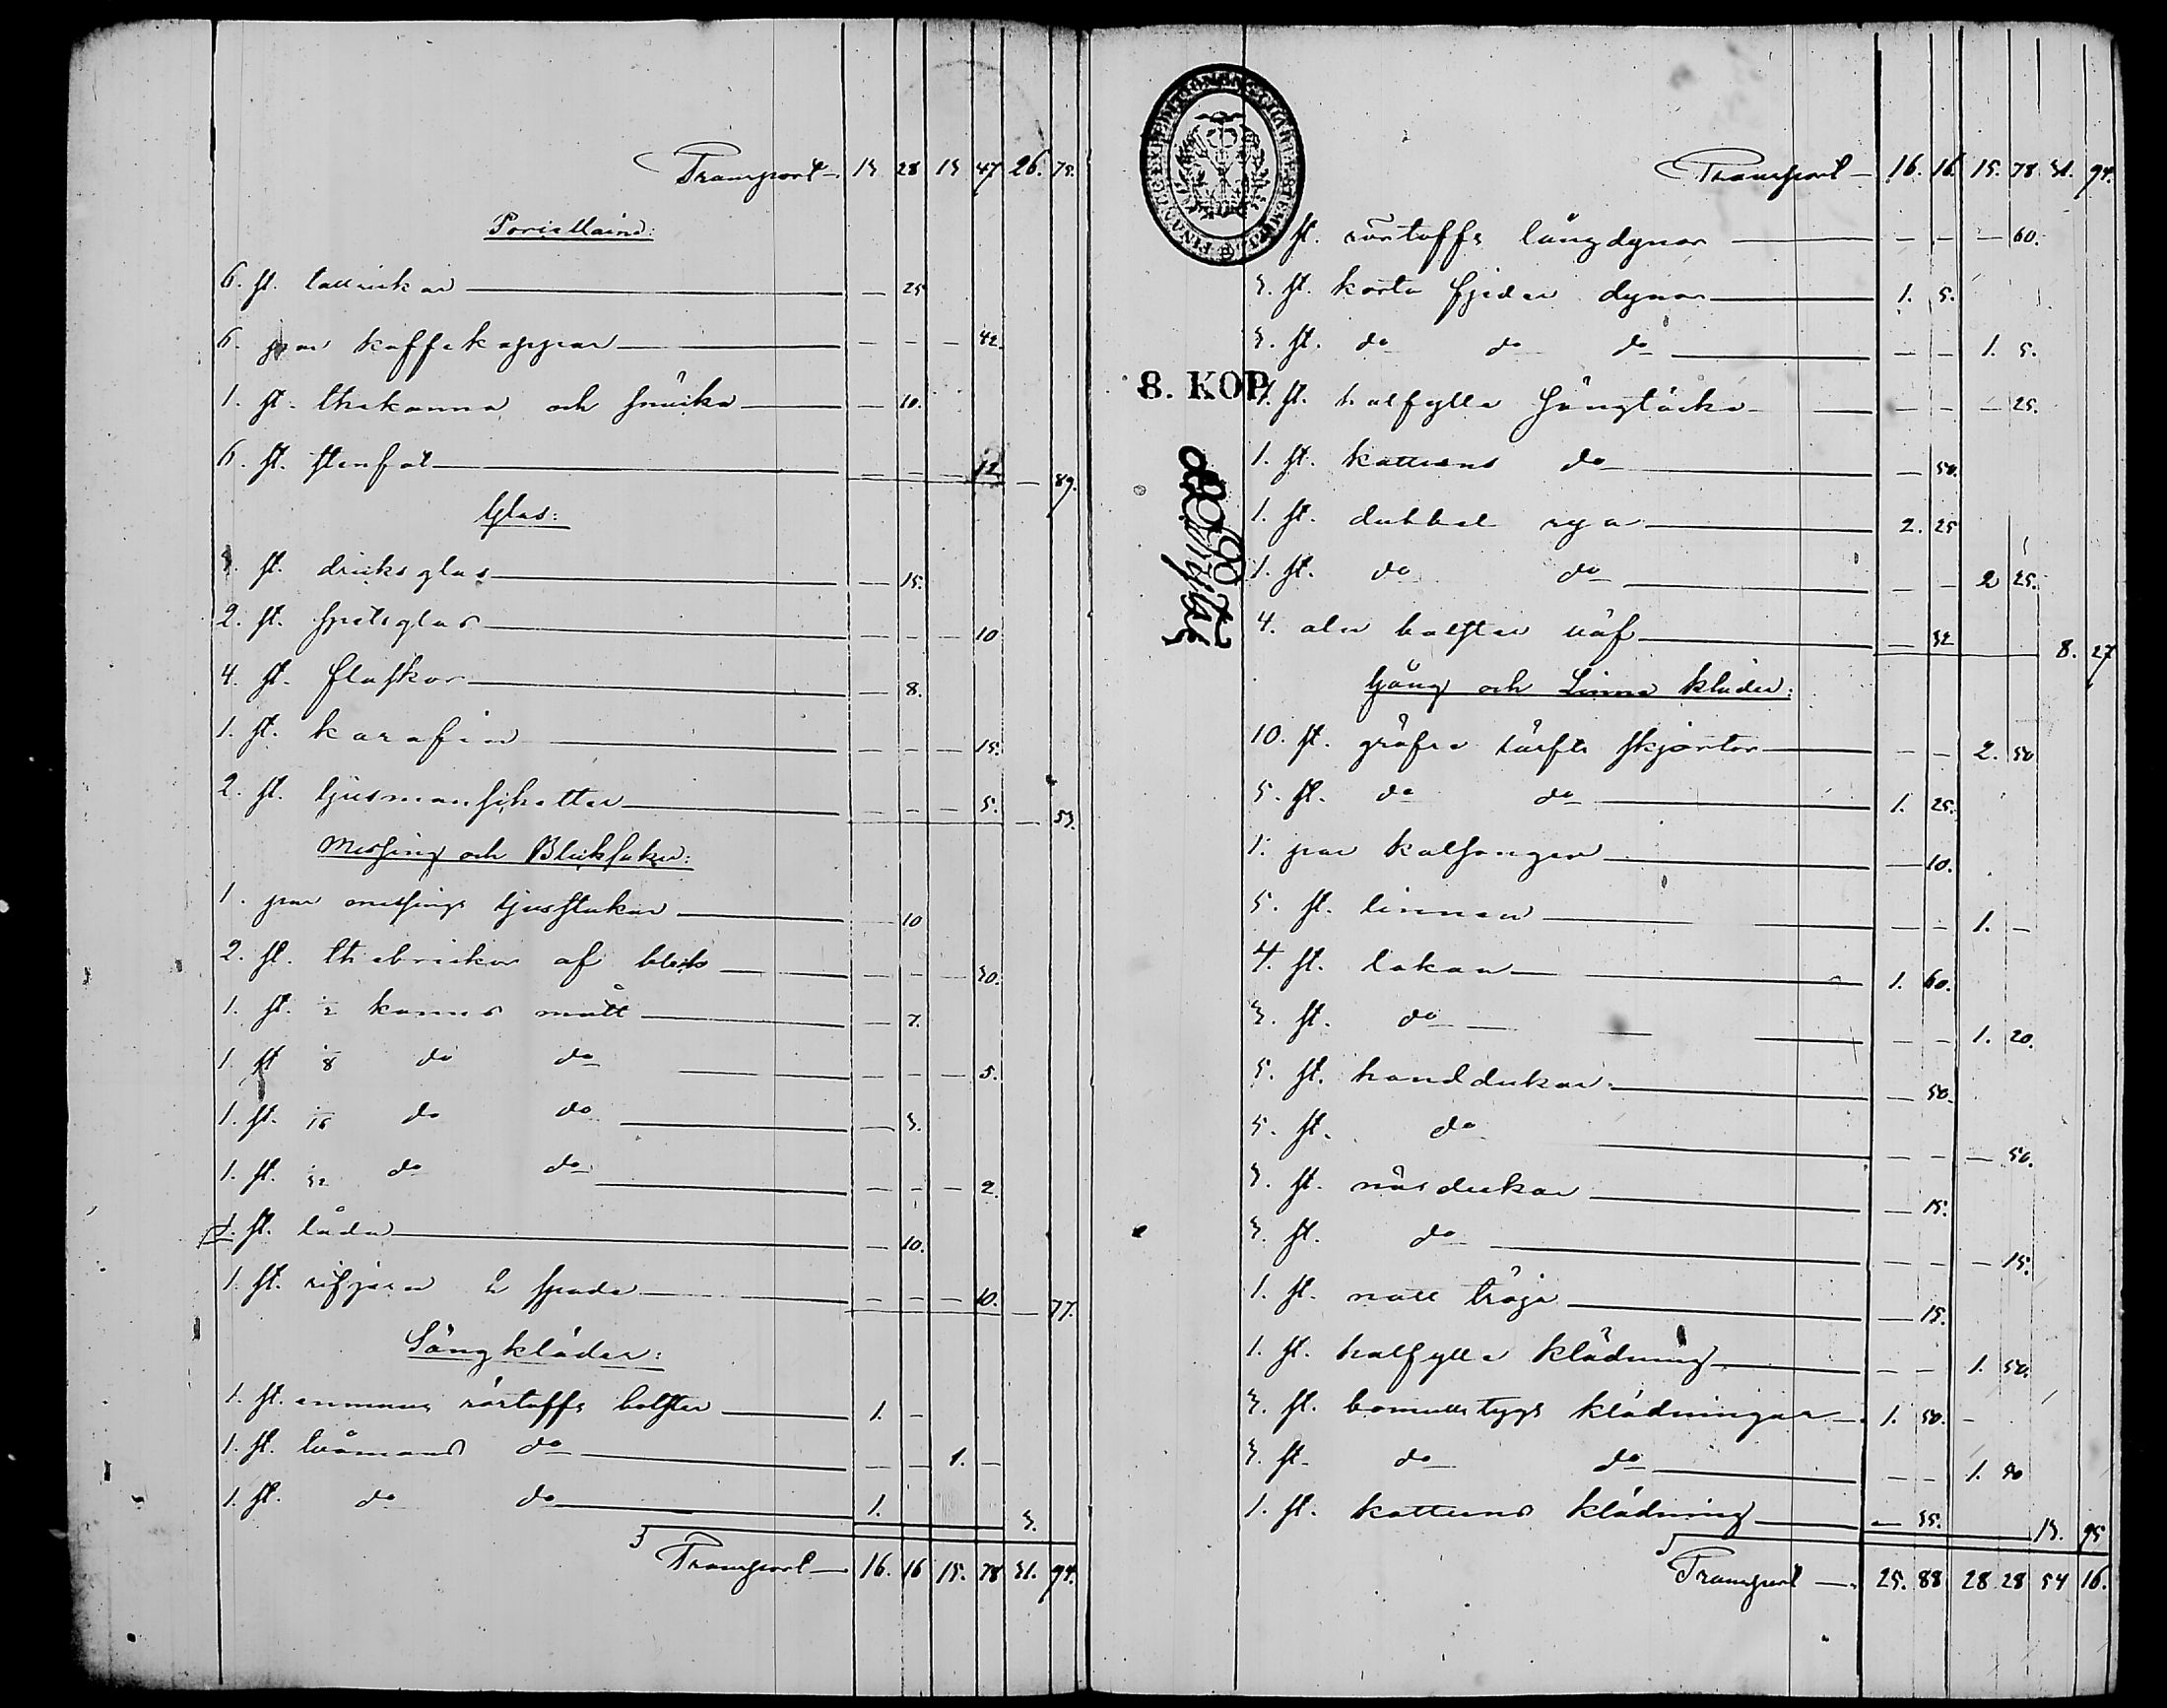 Transport — 13 28 13 47 26. 75.
Porcellaine:
6. st. tallrickar — — 25
6. par kaffekoppar — — — — 42.
1. st. thekanna och snäcka — — 10.
6. st. stenfat — — — — 12 — 89.
Glas:
3. st. dricksglas — — 15.
2. st. spetsglas — — — — 10
4. st. flaskor — — 8.
1. st. karafin — — — — 15.
2. st. ljusmanschetter — — — — 5. — 53.
Messing och Blecksaker:
1. par messings ljusstakar — — 10
2. st. thebrickor af bleck — — — — 30.
1. st. ½ kanns mått — — 7.
1. st ⅛ do do — — — — 5.
1. st. 1/16 do do — — 3.
1. st. 1/32 do do — — — — 2.
1. st. låda — — 10.
1. st. rifjern & spade — — — — 10. — 77.
Sängkläder:
1. st. enmans rörtoffs bolster — 1. –
1. st. tvåmans do — — — 1. –
1. st. do do — 1. 3.
Transport — 16. 16 15. 78 31. 94.
Transport — 16. 16. 15. 78 31. 94.
st. rörtoffs långdynor — — — — 60.
3. st. korta fjeder dynor — 1. 5.
3. st. do do do — — — 1. 5.
1. st. halfylle sängtäcke — — — — 25.
1. st. kattuns do — — 50.
1. st. dubbel rya — 2. 25
1. st. do do — — — 2 25.
4. aln bolster väf — — 32 8. 27
Gång och Linne kläder:
10. st. gröfre lärfts skjortor — — — 2. 50
5. st. do do — 1. 25.
1. par kalsonger — — 10.
5. st. linnen — — — 1. –
4. st. lakan — 1. 60.
3. st. do — — — 1. 20.
5. st. handdukar — — 50.
5. st. do — — — — 50.
3. st. näsdukar — — 15.
3. st. do — — — — 15.
1. st. natt tröja — — 15.
1. st. halfylle klädning — — — 1. 50.
3. st. bomullstygs klädningar — 1. 50. –
3. st. do do — — — 1. 50
1. st. kattuns klädning — — 35. 13. 95
Transport — 25. 88 28 28 54 16.
8. KOP.